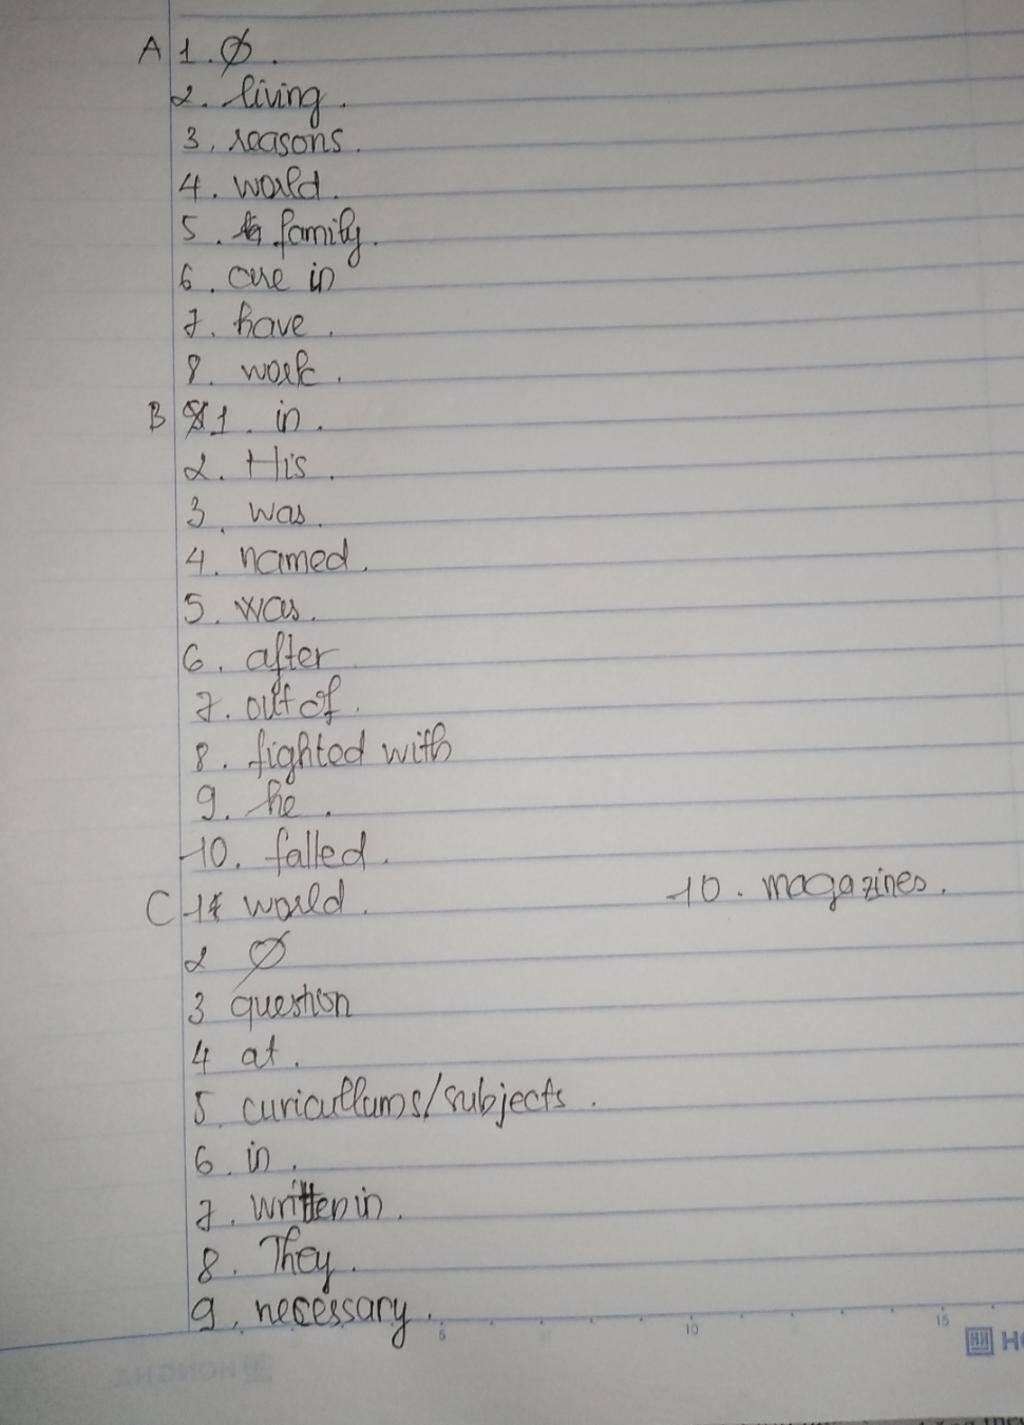 A 1. Ø.
2. living.
3. reasons.
4. world.
5. family.
6. are in
7. have.
8. work.
B 1. in.
2. His.
3. was.
4. named.
5. was.
6. after
7. out of.
8. fighted with
9. he.
10. falled.
C 1 world.
10. magazines.
2 Ø
3 question
4 at.
5. curicullums/subjects.
6. in.
7. written in.
8. They.
9. necessary.
5 10 15